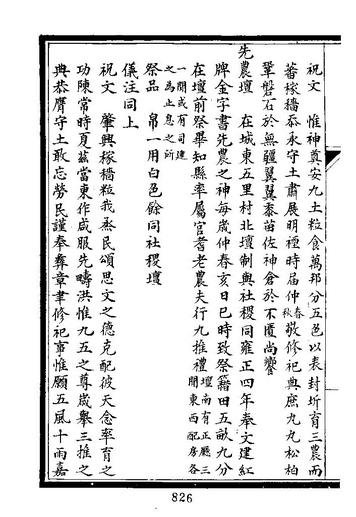 祝文　惟神奠安九土粒食萬邦分五色以表封圻育三農而
蕃稼穡恭承守土肅展明禋時屆仲春秋敬修祀典庶九九松柏
鞏磐石於無疆翼翼黍苗佐神倉於不匱尚饗
先農壇　在城東五里村北壇制與社稷同雍正四年奉文建紅
牌金字書先農之神每歲仲春亥日巳時致祭籍田五畝九分
在壇前祭畢知縣率屬官耆老農夫行九推禮壇南有正廳三間東西配房各
一間或有司達之為止息之所
祭品　帛一用白色餘同社稷壇
儀注同上
祝文　肇興稼穡粒我烝民頌思文之德克配彼天念率育之
功陳常時夏茲當東作咸服先疇洪惟九五之尊歲舉三推之
典恭膺守土敢忘勞民謹奉彝章聿修祀事惟願五風十雨嘉
826